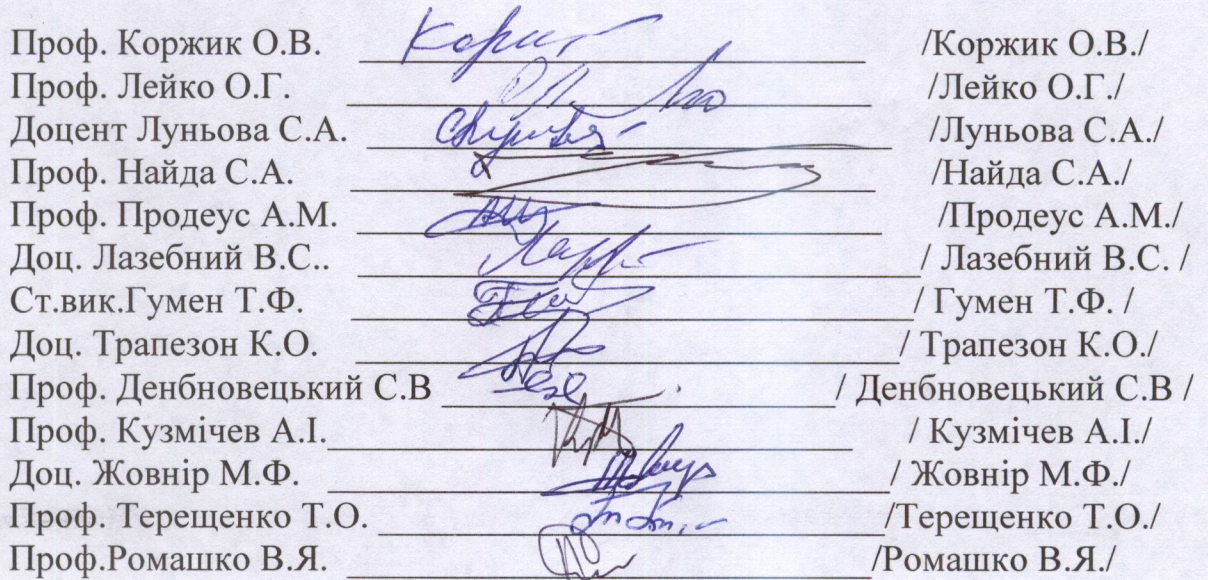 Проф. Коржик О.В. /Коржик О.В./
Проф. Лейко О.Г. /Лейко О.Г./
Доцент Луньова С.А. /Луньова С.А./
Проф. Найда С.А. /Найда С.А./
Проф. Продеус А.М. /Продеус А.М./
Доц. Лазебний В.С.. / Лазебний В.С. /
Ст.вик.Гумен Т.Ф. / Гумен Т.Ф. /
Доц. Трапезон К.О. / Трапезон К.О./
Проф. Денбновецький С.В / Денбновецький С.В /
Проф. Кузмічев А.І. / Кузмічев А.І./
Доц. Жовнір М.Ф. / Жовнір М.Ф./
Проф. Терещенко Т.О. /Терещенко Т.О./
Проф.Ромашко В.Я. /Ромашко В.Я./